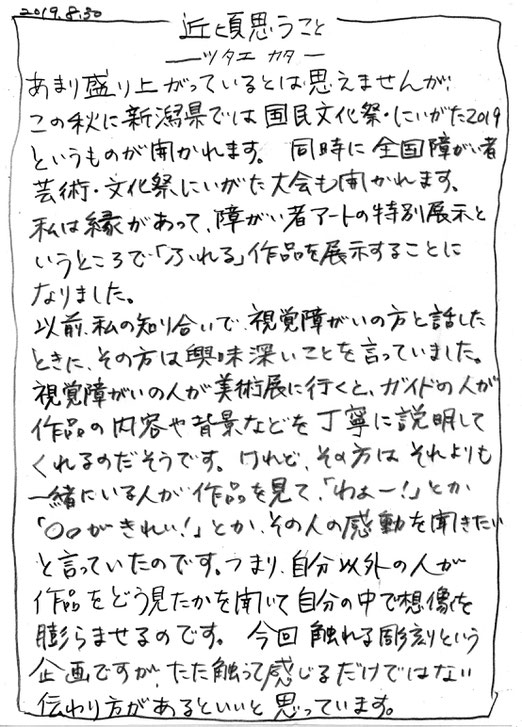 2019.8.30
近頃思うこと
―ツタエ カタ―
あまり盛り上がっているとは思えませんが、
この秋に新潟県では国民文化祭・にいがた2019
というものが開かれます。 同時に全国障がい者
芸術・文化祭にいがた大会も開かれます。
私は縁があって、障がい者アートの特別展示と
いうところで「ふれる」作品を展示することに
なりました。
以前、私の知り合いで、視覚障がいの方と話した
ときに、その方は興味深いことを言っていました。
視覚障がいの人が美術展に行くと、ガイドの人が
作品の内容や背景などを丁寧に説明して
くれるのだそうです。けれど、その方はそれよりも
一緒にいる人が作品を見て、「わぁー!」とか
「○○がきれい!」とか、その人の感動を聞きたい
と言っていたのです。つまり、自分以外の人が
作品をどう見たかを聞いて自分の中で想像を
膨らませるのです。 今回 触れる彫刻という
企画ですが、ただ触って感じるだけではない
伝わり方があるといいと思っています。